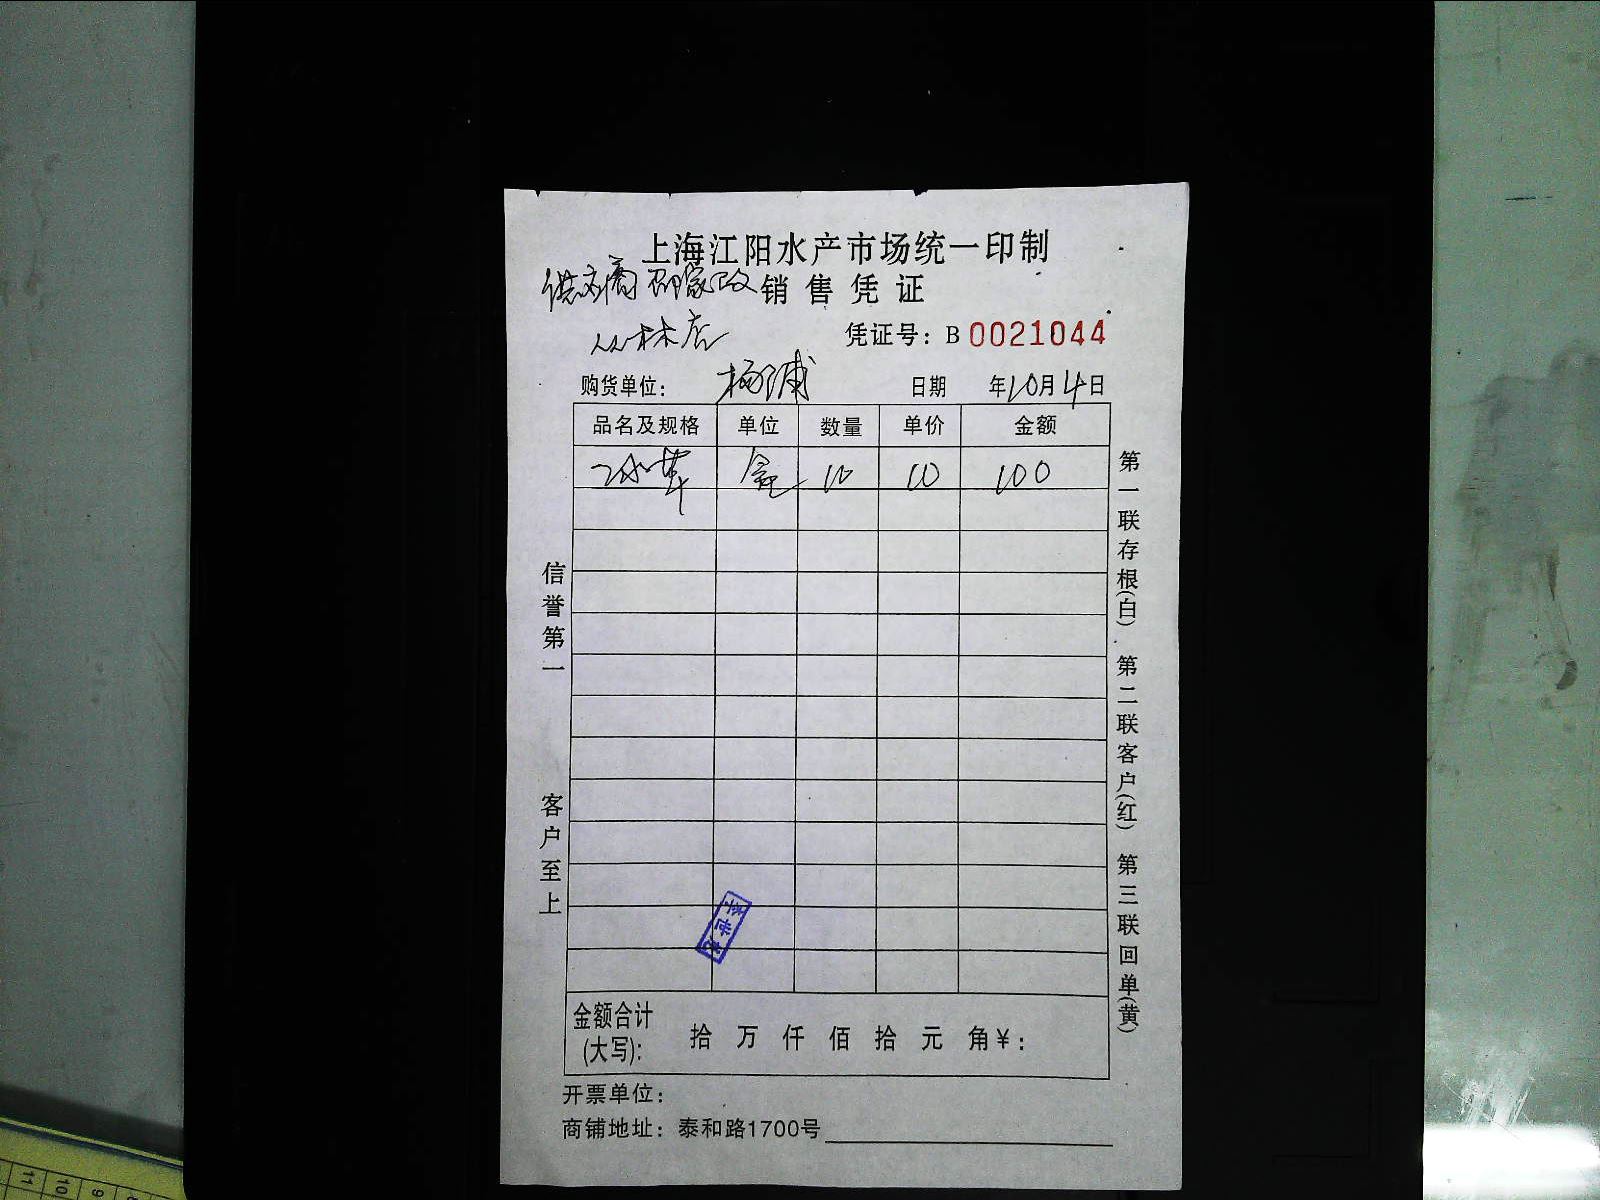 上海江阳水产市场统一印制
销售凭证
丛林店
凭证号：B 0021044
购货单位： 杨浦 日期 年10月4日
品名及规格 单位 数量 单价 金额
10 10 100
信誉第一 客户至上
第一联存根(白) 第二联客户(红) 第三联回单(黄)
金额合计
(大写)： 拾 万 仟 佰 拾 元 角 ¥：
开票单位：
商铺地址：泰和路1700号